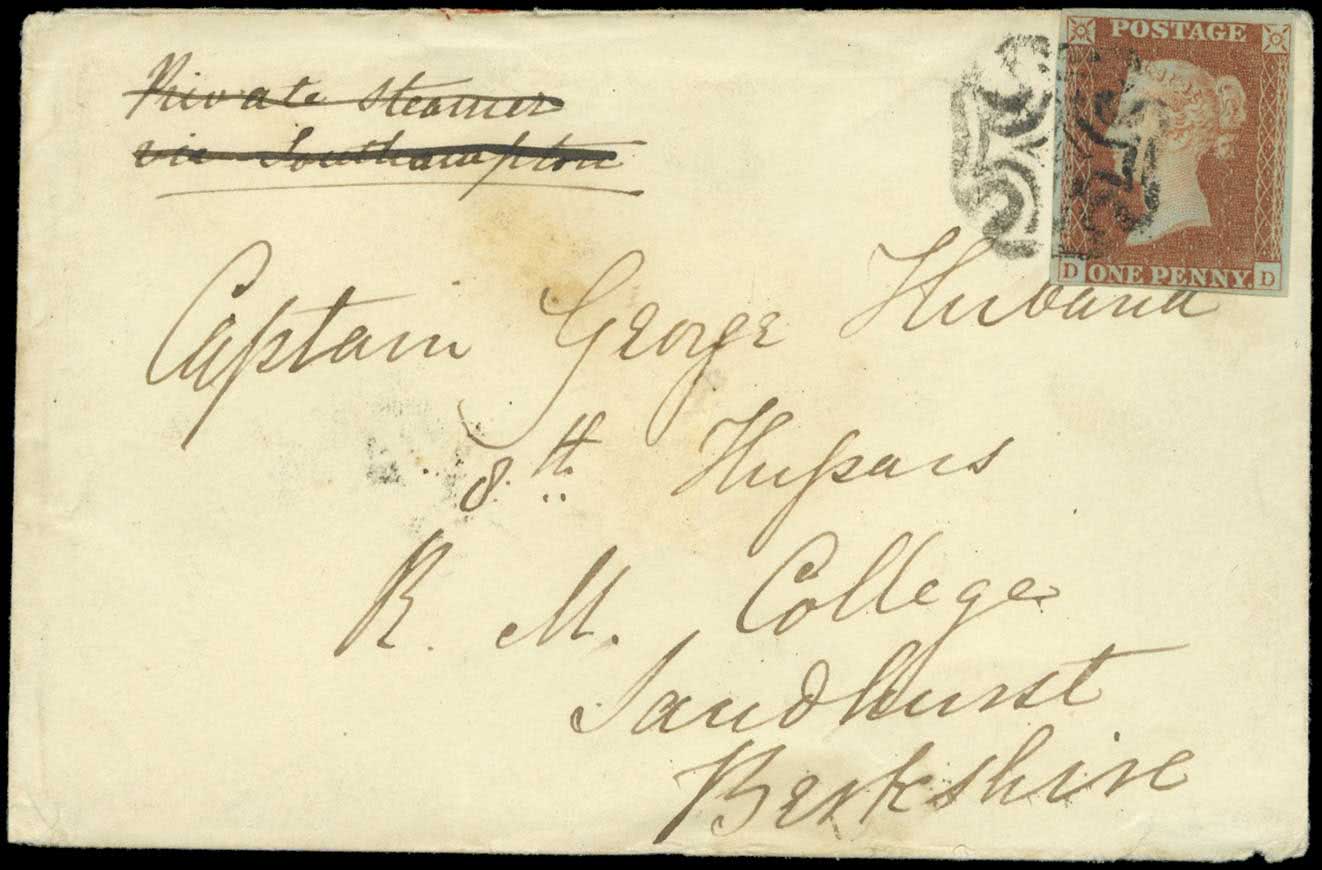 Private Steamer
via Southampton
POSTAGE
D ONE PENNY. D
Captain George Husband
8th Hussars
R. M. College
Sandhurst
Berkshire